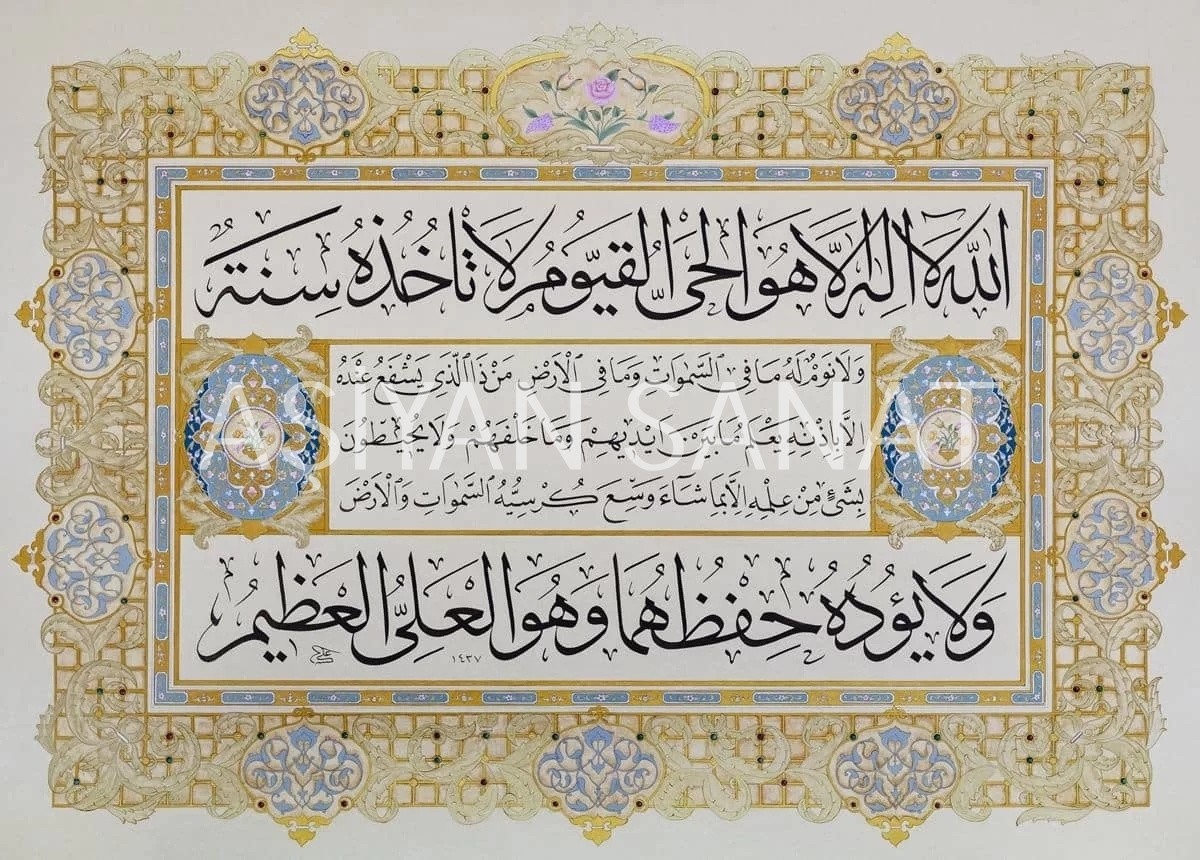 اللّٰهُ لَا اِلٰهَ اِلَّا هُوَ الْحَىُّ الْقَيُّومُ لَا تَأْخُذُهُ سِنَةٌ
وَلَا نَوْمٌ لَهُ مَا فِى السَّمٰوَاتِ وَمَا فِى الْاَرْضِ مَنْ ذَا الَّذِى يَشْفَعُ عِنْدَهُ
ASİYAN SANAT
اِلَّا بِاِذْنِهِ يَعْلَمُ مَا بَيْنَ اَيْدِيهِمْ وَمَا خَلْفَهُمْ وَلَا يُحِيطُونَ
بِشَىْءٍ مِنْ عِلْمِهِ اِلَّا بِمَا شَاءَ وَسِعَ كُرْسِيُّهُ السَّمٰوَاتِ وَالْاَرْضَ
وَلَا يَؤُدُهُ حِفْظُهُمَا وَهُوَ الْعَلِىُّ الْعَظِيمُ
١٤٣٧